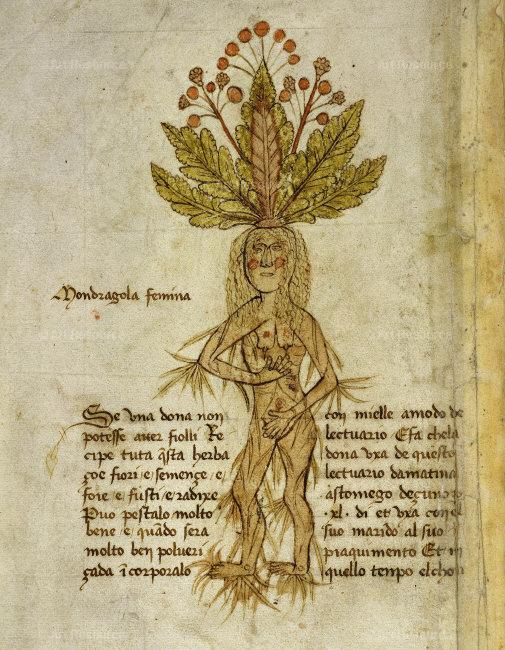 Mondragola femina
Se vna dona non
potesse auer fiolli Re
cipe tuta q̄sta herba
çoe fiori e semençe e
foie e fusti e radixe
Puo pestalo molto
bene e quādo sera
molto ben polueri
çada ī corporalo
con mielle amodo de
lectuario E fa chela
dona vxa de questo
lectuario damatina
astomego deçuno
.xl. di et vxa con el
suo marido al suo
piaquimento Et in
quello tempo el